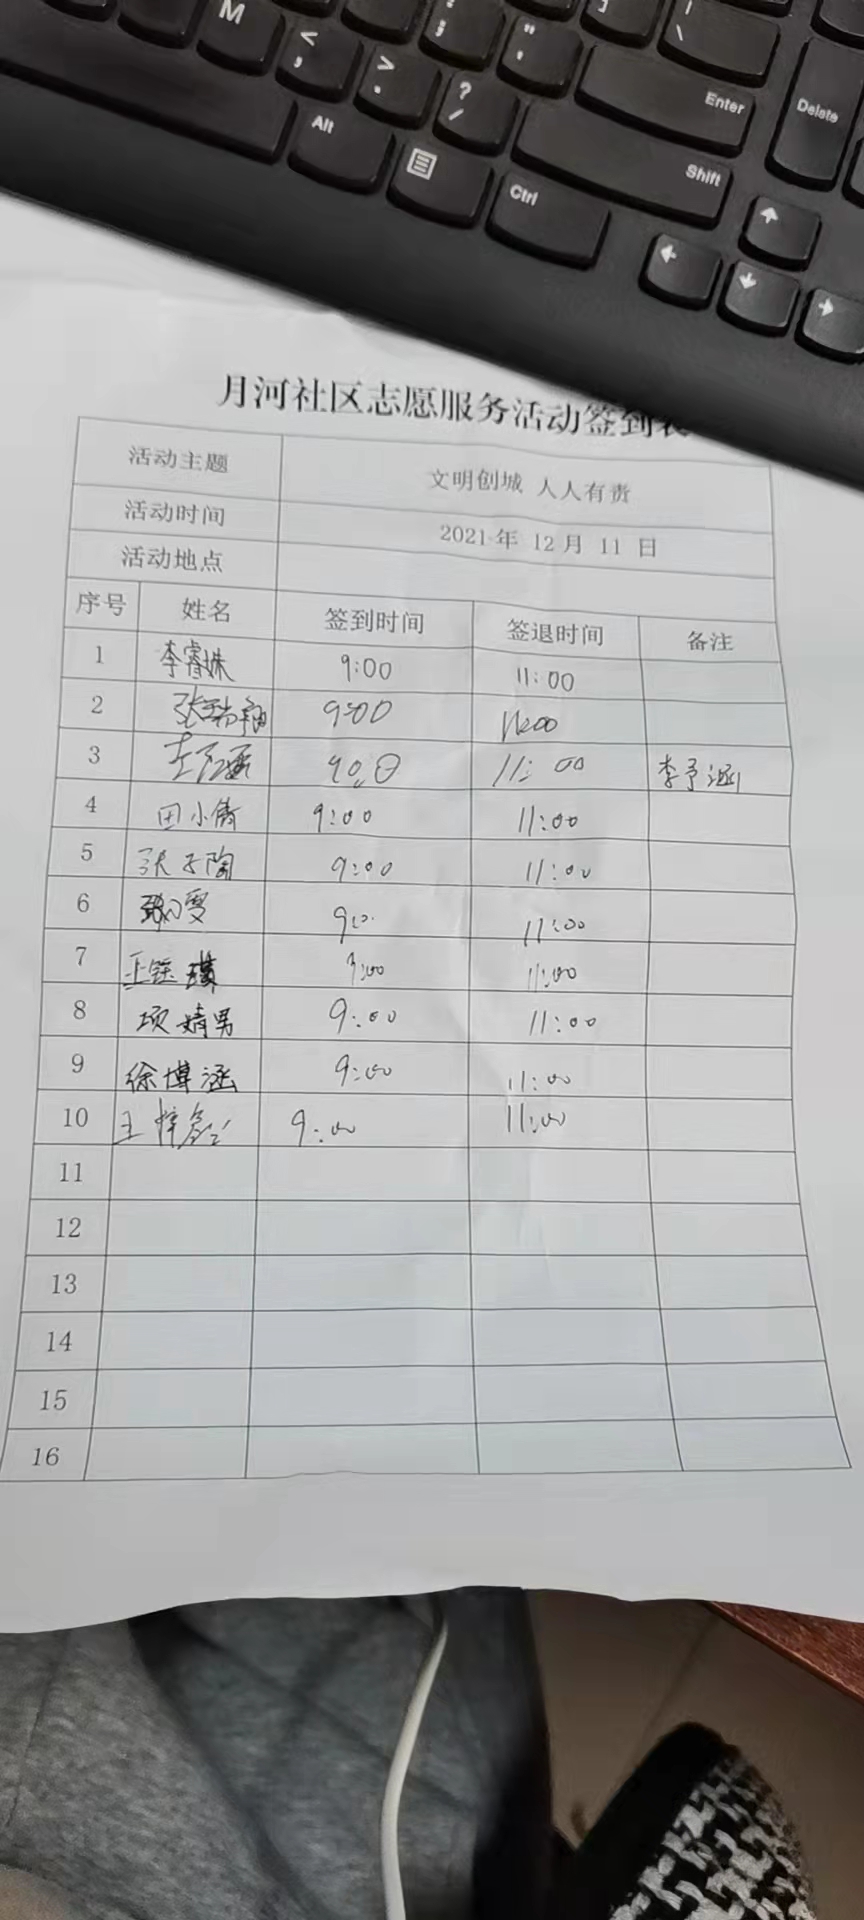 M
<
,
>
.
?
/
"
'
Enter
Delete
Alt
Shift
Ctrl
月河社区志愿服务活动签到表
活动主题 文明创城 人人有责
活动时间 2021年 12月 11 日
活动地点
序号 姓名 签到时间 签退时间 备注
1 李睿姝 9:00 11:00
2 张 9:00 11:00
3 李予涵 9:00 11:00 李予涵
4 田小倩 9:00 11:00
5 张子陶 9:00 11:00
6 雯 9:0 11:00
7 王钰琪 9:00 11:00
8 项婧男 9:00 11:00
9 徐博涵 9:00 11:00
10 王梓 9:00 11:00
11
12
13
14
15
16